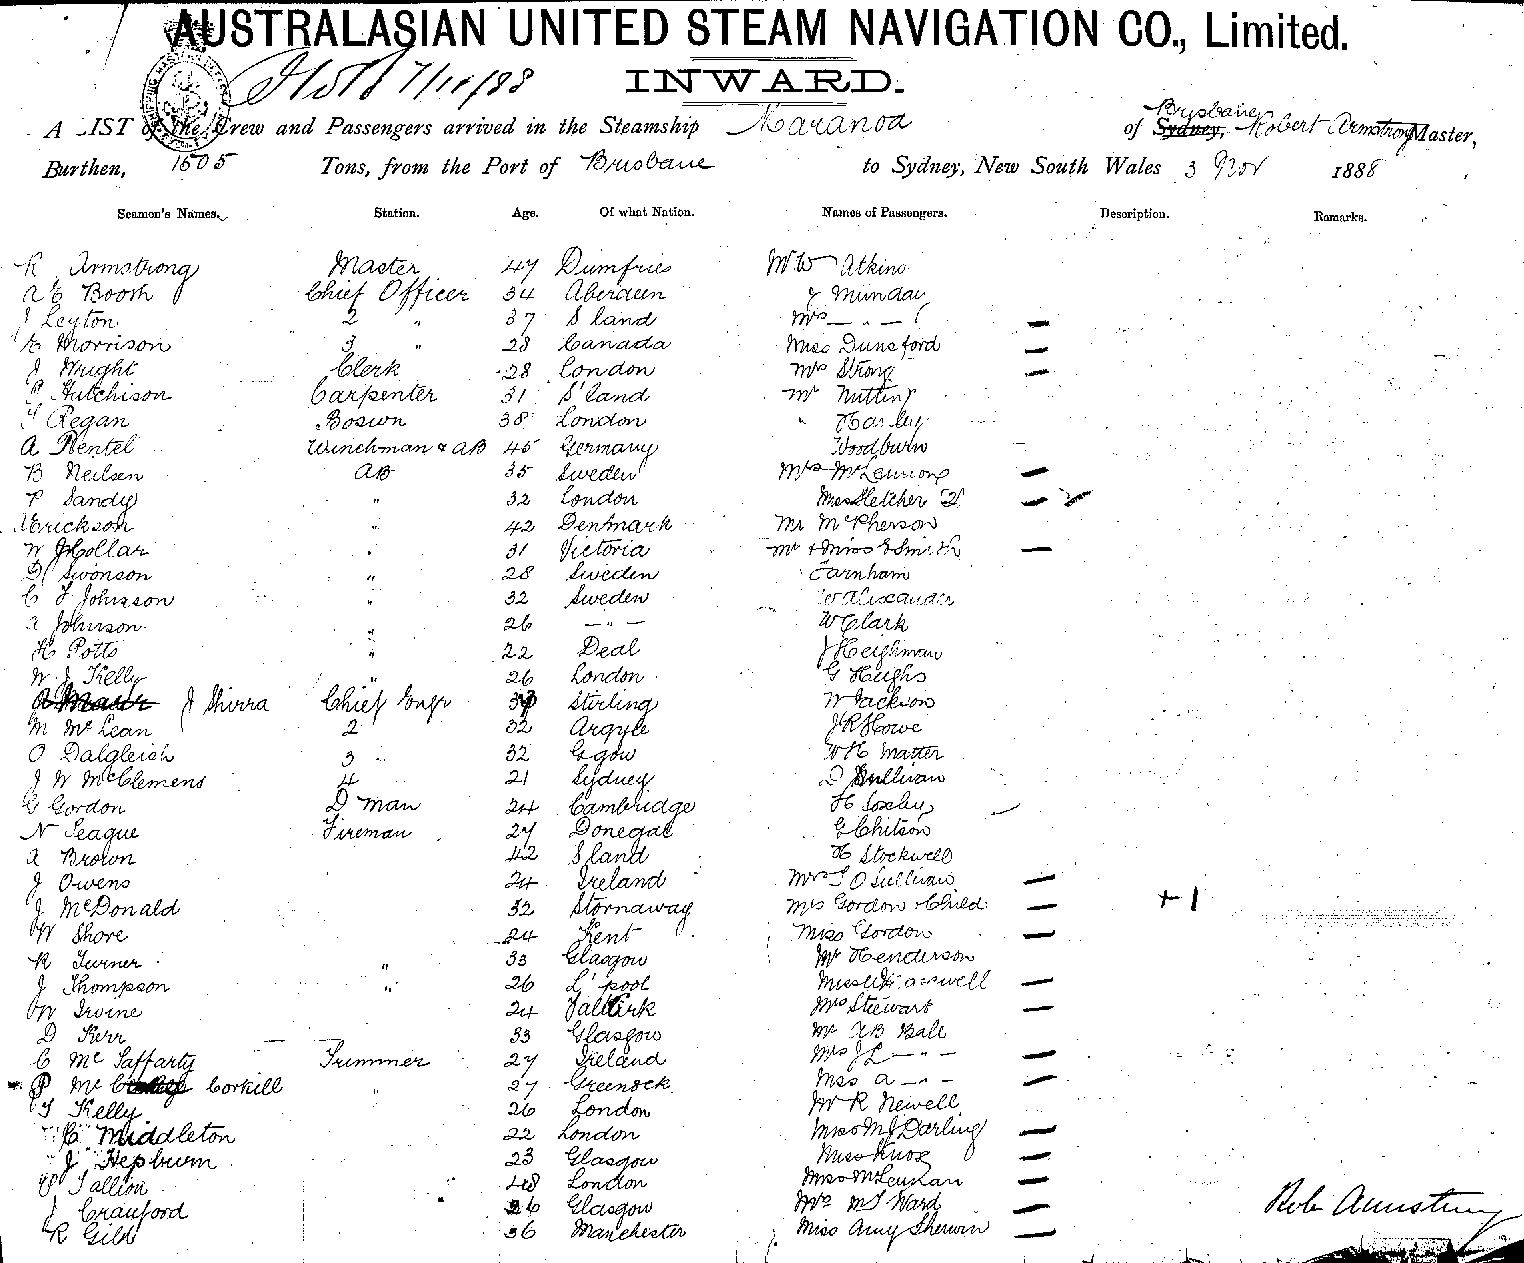 AUSTRALASIAN UNITED STEAM NAVIGATION CO., Limited.
INWARD.
A LIST of the Crew and Passengers arrived in the Steamship Maranoa of Sydney, Brisbane Robert Armstrong Master,
Burthen, 1505 Tons, from the Port of Brisbane to Sydney, New South Wales 3 Nov 1888
Seamen's Names. Station. Age. Of what Nation. Names of Passengers. Description. Remarks.
R Armstrong Master 47 Dumfries Mr W Atkins
A E Booth Chief Officer 34 Aberdeen J Munday
J Leyton 2 " 37 S land Mrs — " — —
Morrison 3 " 28 Canada Miss Dunsford —
J Wright Clerk 28 London Mrs Strong —
Hutchison Carpenter 31 S'land Mr Nutting
Regan Boswn 38 London " Harley
A Hentel Winchman & AB 45 Germany Woodburn
B Neilsen AB 35 Sweden Mrs McLennong —
P Sandy " 32 London Miss Fletcher 2 — 2
Erickson " 42 Denmark Mr McPherson
W J Hollar " 31 Victoria Mr & Miss Smith —
Swonson " 28 Sweden Farnham
C F Johnsson " 32 Sweden W Alexander
A Johnson " 26 — " — W Clark
H Potts " 22 Deal J Heighman
W J Kelly " 26 London G Heighs
J Shirra Chief Engr Stirling W Jackson
M McLean 2 32 Argyle J R Howe
O Dalgleish 3 " 32 Ggow W H Matter
J W McClemens 4 21 Sydney D Sullivan
G Gordon D man 24 Cambridge H Soxley
N Teague Fireman 27 Donegal G Chitson
A Brown 42 S land H Stockwell
J Owens 24 Ireland Mrs T O Sullivan —
J McDonald 32 Stornaway Mrs Gordon & Child — + 1
W Shore 24 Kent Miss Gordon —
R Turner " 33 Glasgow Mr Henderson
J Thompson " 26 L'pool Miss —
W Irvine 24 Falkirk Mrs Stewart —
D Kerr 33 Glasgow Mr Ball
C Mc Taffarty Trimmer 27 Ireland Mrs J L — " — —
P Mc Corkill " 27 Greenock Miss A — " — —
Kelly 26 London Mr R Newell
C Middleton 22 London Miss M J Darling —
J Hepburn 23 Glasgow Miss Knox —
Tallion 48 London Miss McLennan —
J Crauford 26 Glasgow Mrs M T Ward —
R Gild 36 Manchester Miss Amy Sherwin —
Rob Armstrong